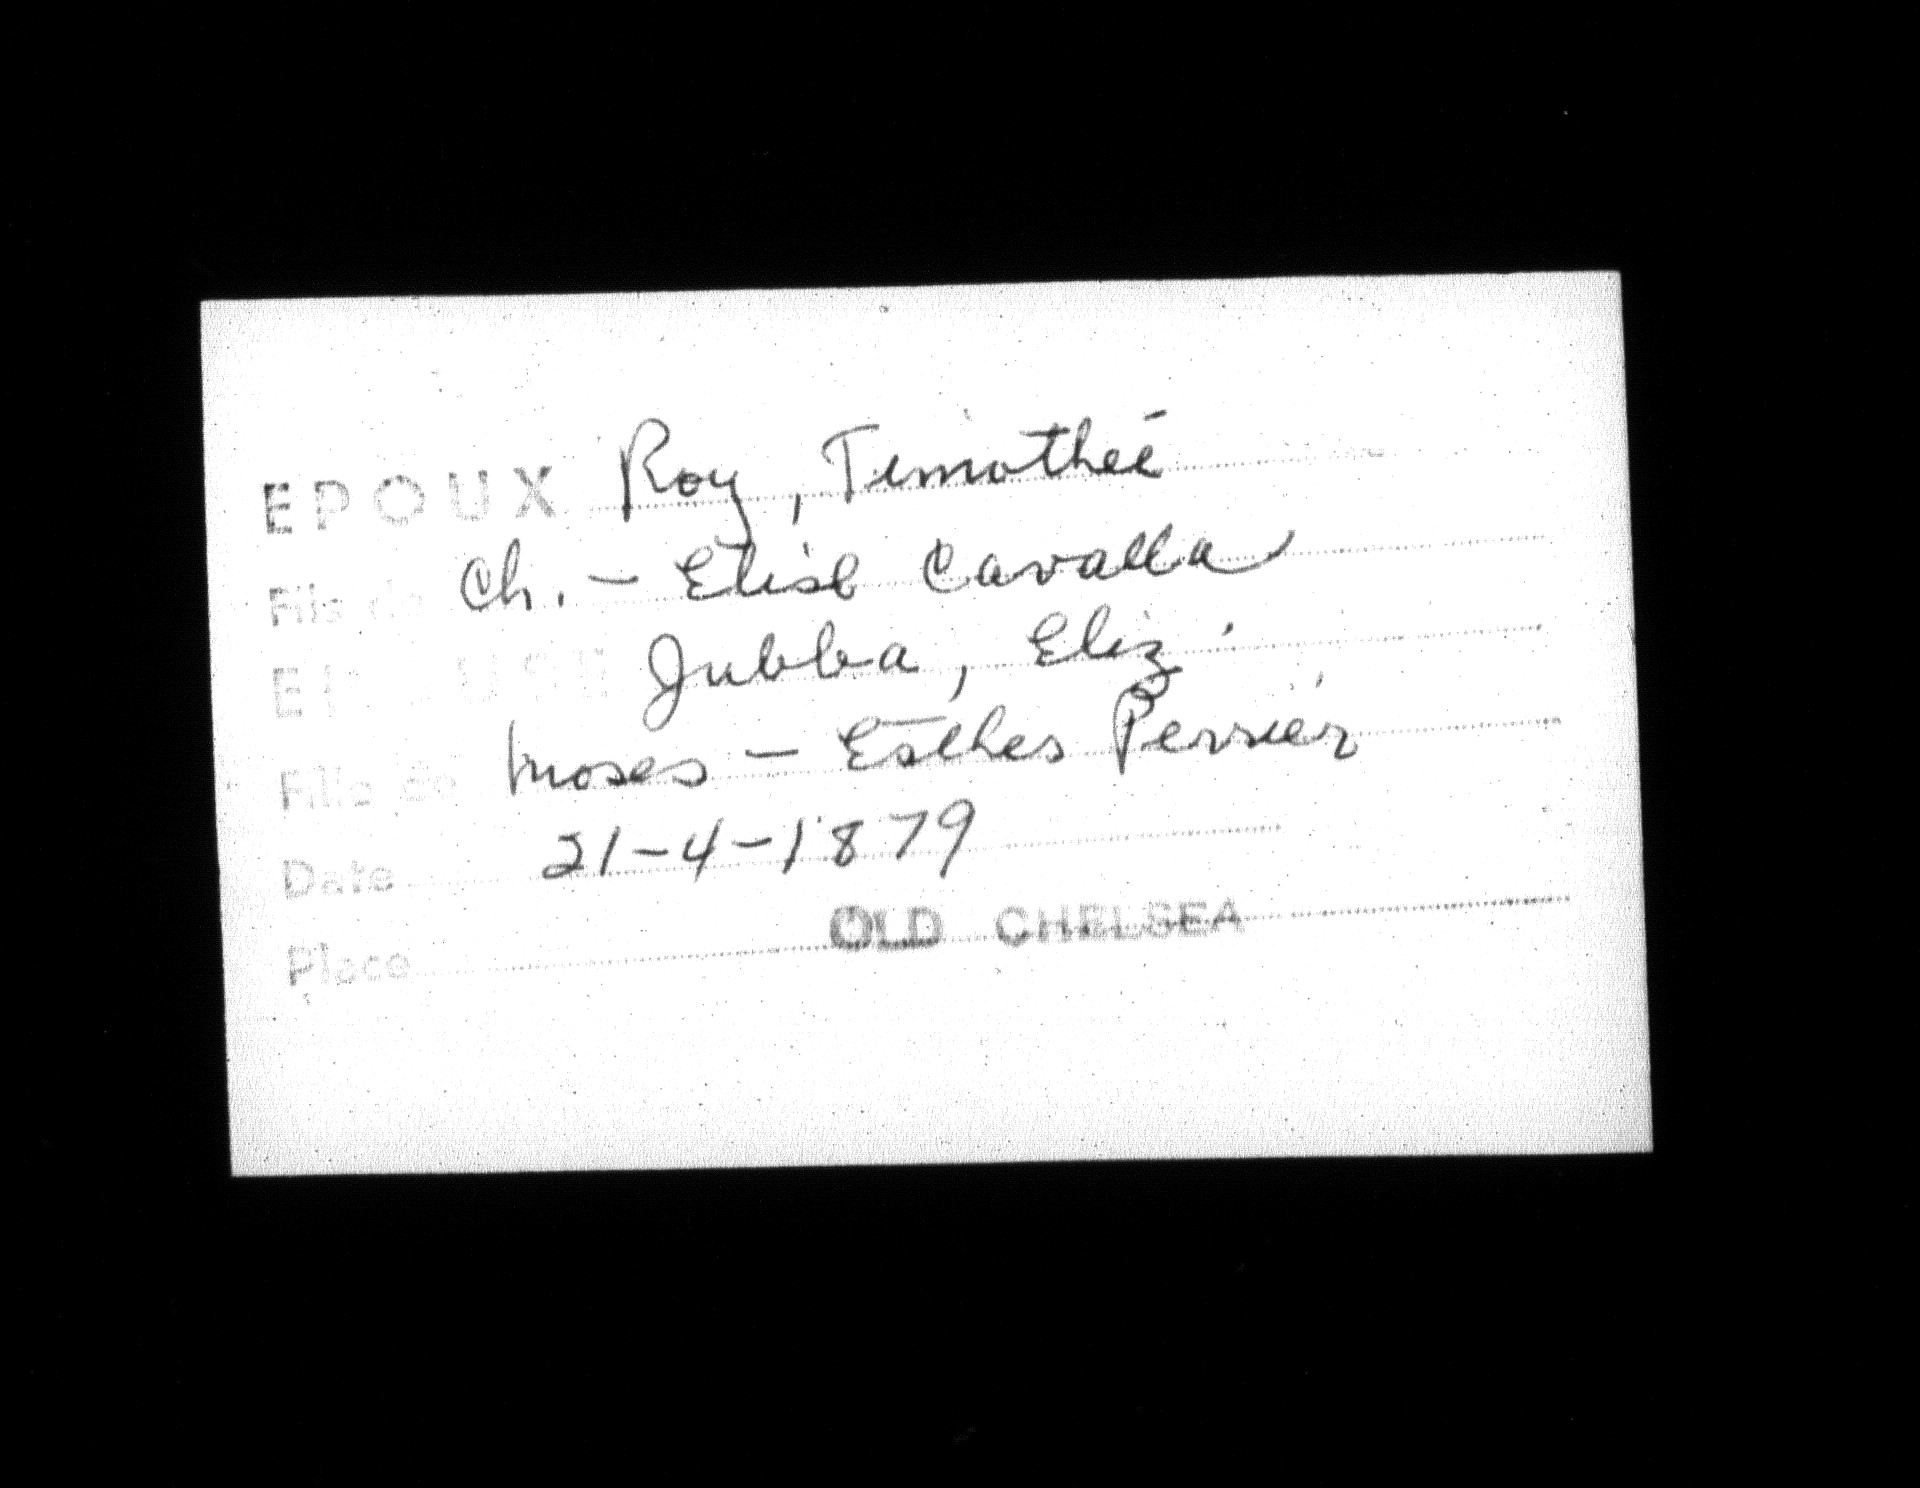 EPOUX Roy, Timothée
Fils de Ch. - Elise Cavalla
EPOUSE Jubba, Eliz.
Fille de Moses - Esther Perrier
Date 21-4-1879
Place OLD CHELSEA